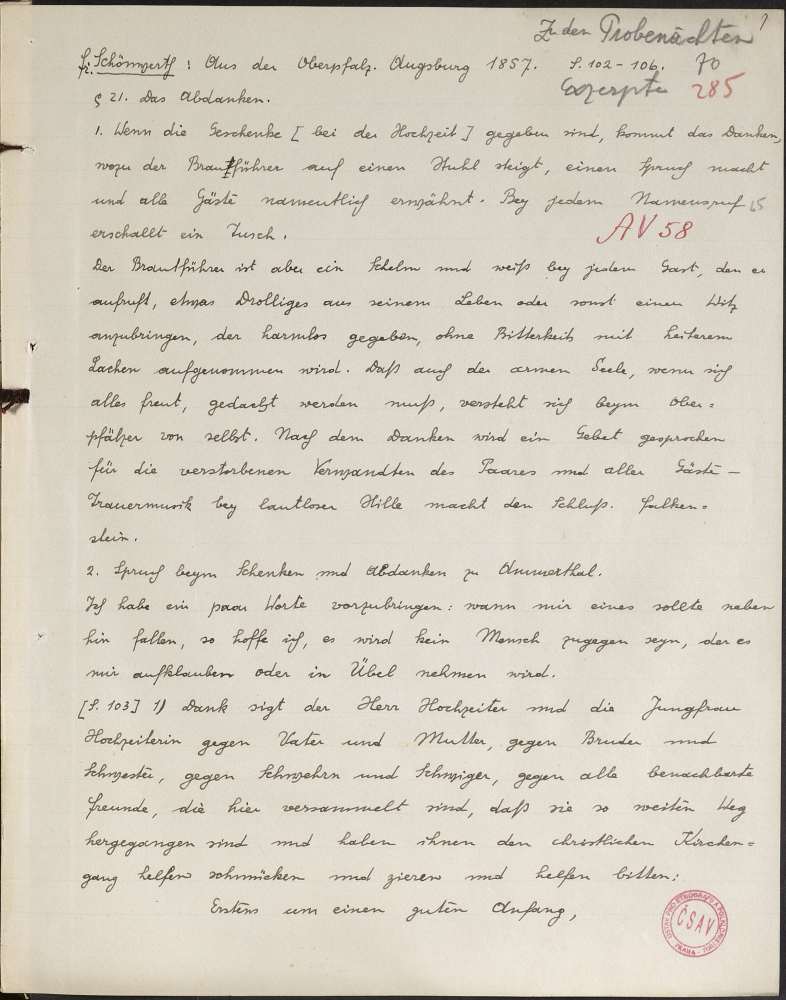 Zu den Probenächten 1
Fr. Schönwerth : Aus der Oberpfalz. Augsburg 1857. S. 102 - 106. 70
Exzerpte 285
§ 21. Das Abdanken.
1. Wenn die Geschenke [ bei der Hochzeit ] gegeben sind, kommt das Danken,
wozu der Brautführer auf einen Stuhl steigt, einen Spruch macht
und alle Gäste namentlich erwähnt. Bey jedem Namensruf
erschallt ein Tusch.
AV 58
Der Brautführer ist aber ein Schelm und weiß bey jedem Gast, den er
aufruft, etwas Drolliges aus seinem Leben oder sonst einen Witz
anzubringen, der harmlos gegeben, ohne Bitterkeit mit heiterem
Lachen aufgenommen wird. Daß auch der armen Seele, wenn sich
alles freut, gedacht werden muß, versteht sich beym Ober=
pfälzer von selbst. Nach dem Danken wird ein Gebet gesprochen
für die verstorbenen Verwandten des Paares und aller Gäste –
Trauermusik bey lautloser Stille macht den Schluß. Falken=
stein.
2. Spruch beym Schenken und Abdanken zu Ammerthal.
Ich habe ein paar Worte vorzubringen: wann mir eines sollte neben
hin fallen, so hoffe ich, es wird kein Mensch zugegen seyn, der es
mir aufklauben oder in Übel nehmen wird.
[S. 103] 1) Dank sigt der Herr Hochzeiter und die Jungfrau
Hochzeiterin gegen Vater und Mutter, gegen Bruder und
Schwester, gegen Schwehrn und Schwiger, gegen alle benachbarte
Freunde, die hier versammelt sind, daß sie so weiten Weg
hergegangen sind und haben ihnen den christlichen Kirchen=
gang helfen schmücken und zieren und helfen bitten:
Erstens um einen guten Anfang,
ČSAV
PRAHA